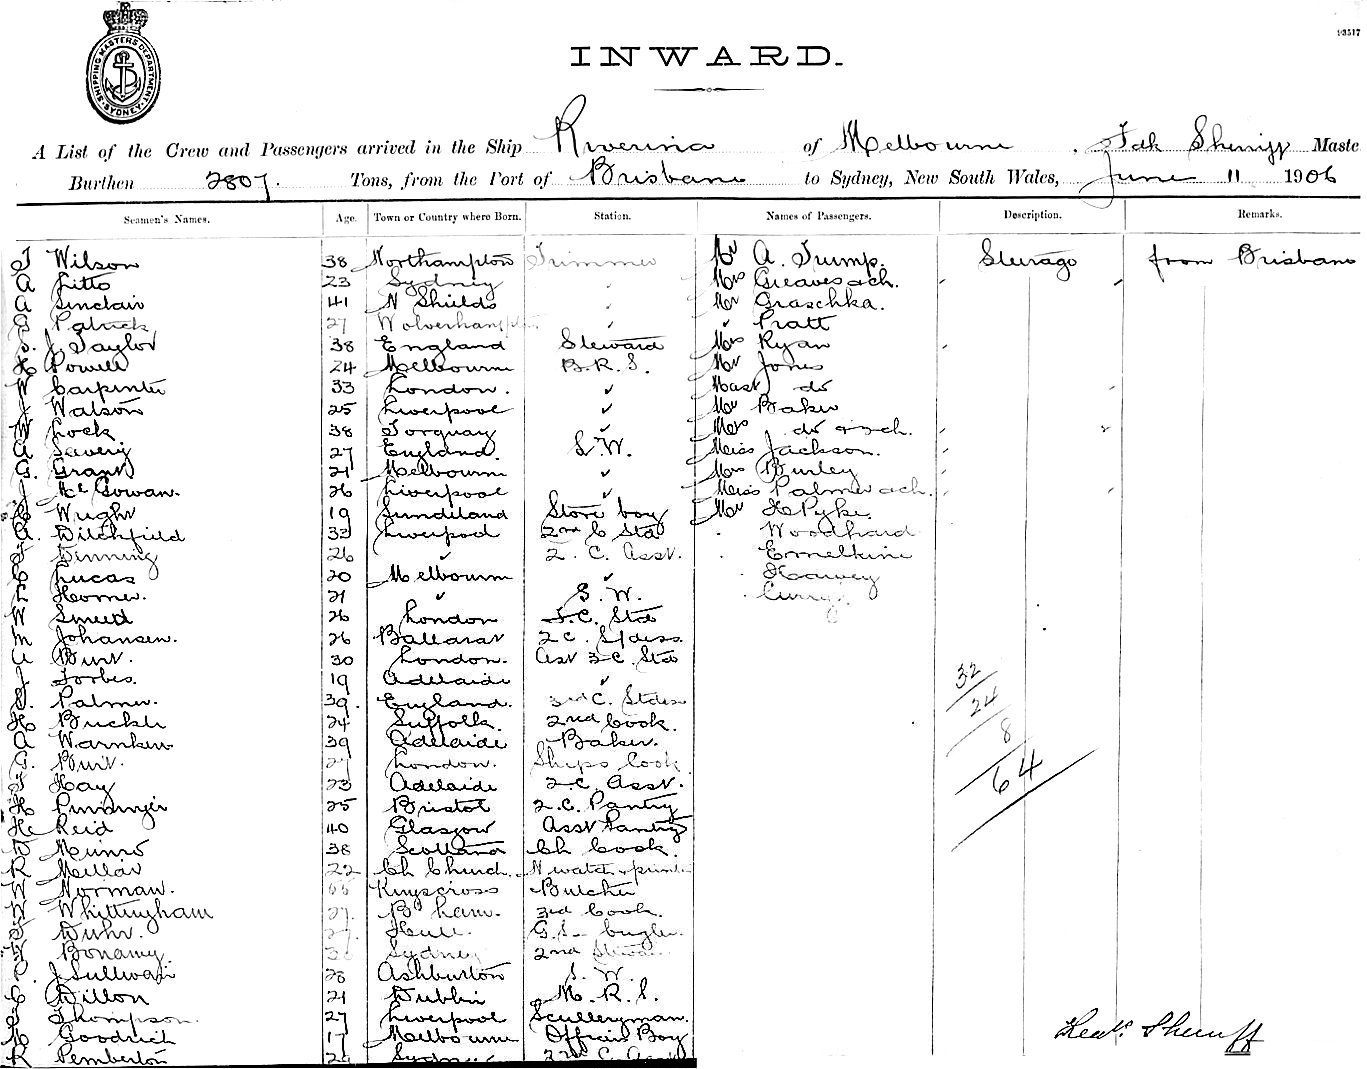 SHIPPING MASTERS DEPARTMENT SYDNEY
93517
INWARD.
A List of the Crew and Passengers arrived in the Ship Riverina of Melbourne, Master
Burthen 2807. Tons, from the Port of Brisbane to Sydney, New South Wales, June 11 1906
Seamen's Names. Age. Town or Country where Born. Station. Names of Passengers. Description. Remarks.
Wilson 38 Northampton Trimmer Mr A. Trump. Steerage from Brisbane
A 23 Sydney Mrs Greaves ach.
A Sinclair 41 N Shields Mr Graschka.
Patrick 27 Wolverhampton Pratt
J. Taylor 38 England Steward Mrs Ryan
H Powell 24 Melbourne B.R.S. Mr Jones
W Carpenter 33 London. Mast do
J Watson 25 Liverpool Mr Baker
W Lock 38 Torquay Mrs do
A Savery 27 England. S.W. Miss Jackson.
G. Grant 21 Melbourne Mrs Burley
J McGowan. 26 Liverpool Miss Palmer ach.
Wright 19 Sunderland Store boy Mr H Pyke.
A. Ditchfield 33 Liverpool 2nd C Std Woodhard
Dinning 26 2. C. Asst.
Lucas 20 Melbourne Harvey
L Horner. 21 S. W. Curry.
W Smeed 26 London S.C. Std
M Johansen. 26 Ballarat 2 C. Stdess.
A Burt. 30 London. Ast 3 C. Std
J Forbes. 19 Adelaide
Palmer. 39. England. 3rd C. Stdess 32
H Buckle 24 Suffolk. 2nd Cook. 24
A Warnken 39 Adelaide Baker. 8
Burt. 27 London. Ships Cook 64
Hay 23 Adelaide 2.C. Asst.
H 25 Bristol 2.C. Pantry
H Reid 40 Glasgow Asst Pantry
D Munro 38 Scotland Ch Cook.
R Millar 22 Ch Church.
W Norman. Kingscross Butcher
W Whittingham 27. B'ham. 3rd Cook.
Duhr. 27. Hull. G.S. bugler.
Bonamy. Sydney 2nd Steward
J Sullivan 28 Ashburton S. W.
Dillon 21 Dublin M. R. S.
Thompson 27 Liverpool Sculleryman.
H Goodrich 17 Melbourne Officers Boy Sherriff
R Pemberton Sydney 2nd C. Asst